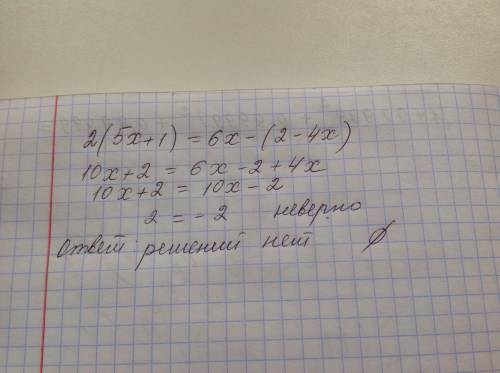 2(5x+1) = 6x-(2-4x)
10x+2 = 6x-2+4x
10x+2 = 10x-2
2 = -2 неверно
Ответ решений нет ∅